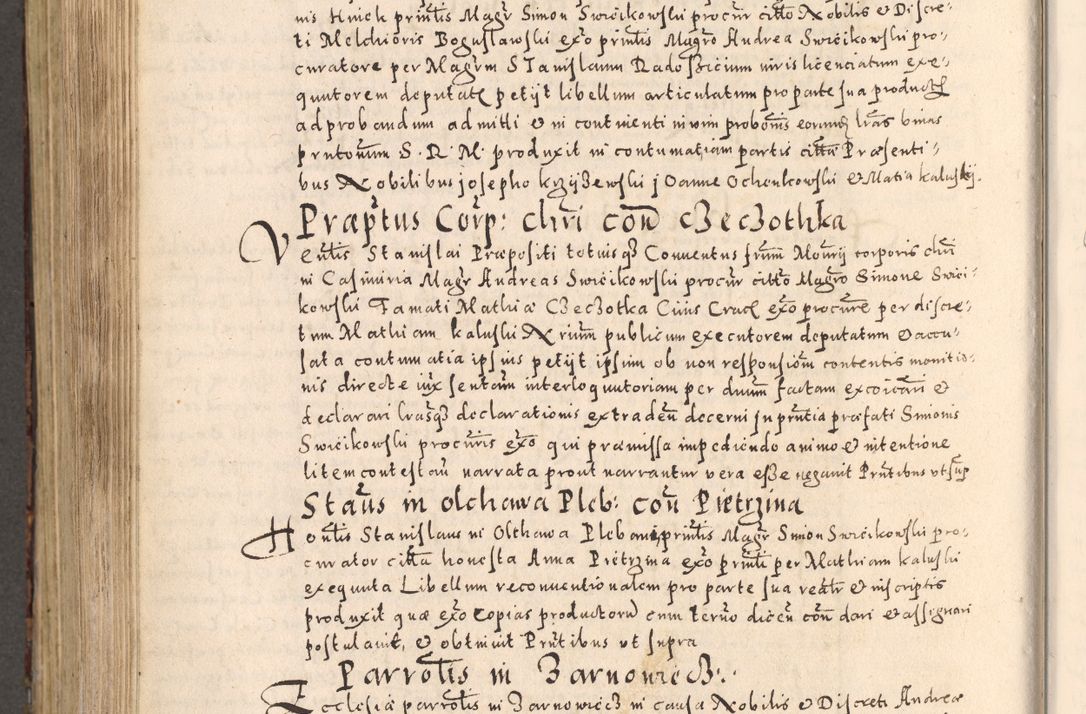 nis Huick printis Magr Simon Swiecikowski procur citto Nobilis et Discre-
ti Melchioris Boguslawski exo printis Magro Andrea Swiecikowski pro-
curatore per Magrm Stanislaum Radoszicium iuris licenciatum exe-
quutorem deputat petyt libellum articulatum pro parte sua product
ad probandum admitti et in continenti in vim probonis eorumq lras binas
prntonum S. R. M. produxit in contumatiam partis citta Præsenti-
bus Nobilibus josepho krzyzewski joanne Ochenkowski et Matia kaluskj.
Præptus Corp: chri con czeczothka
Ventis Stanislai Præpositi totiusq Conuentus frum Mourij corporis chri
in Casimiria Magr Andreas Swiecikowski procur citto Magro Simone Swieci-
kowski Famati Mathiæ Czeczotka Ciuis Crac exo procure per discre-
tum Mathiam kaluski Nrium publicum executorem deputatum et accu-
sata contumatia ipsius petyt ipsum ob non responsiom contentis monitio-
nis directe iux sentam interloquutoriam per dnum factam excoicari et
declarari lrasq declarationis extraden decerni in prntia præfati Simonis
Swiecikowski procuris exo qui præmissa impediendo animo et intentione
litem contestan narrata prout narrantur vera esse negauit Prntibus vt sup
Staus in olchawa Pleb: con Pietrzina
Hontis Stanislaus in Olchawa Plebani printis Magr Simon Swiecikowski pro-
curator citta honesta Anna Pietrzina exo printi per Mathiam kaluski
exequuta Libellum reconuentionalem pro parte sua reatr et inscriptis
produxit quæ exo copias productorum cum termo dicen con dari et assignari
postulauit, et obtinuit Prntibus vt supra
Parrotis in Zarnowiecz:
Ecclesiæ parrotis in Zarnowiecz in causa Nobilis et Discreti Andreæ